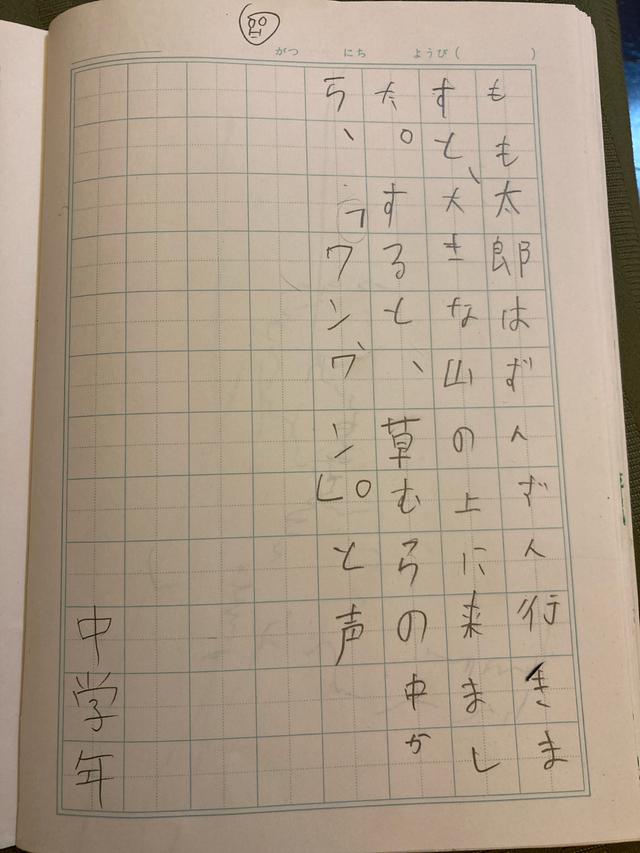 がつ にち ようび( )
もも太郎はずんずん行きま
すと、大きな山の上に来まし
た。すると、草むらの中か
ら、「ワンワン」。と声
中学年